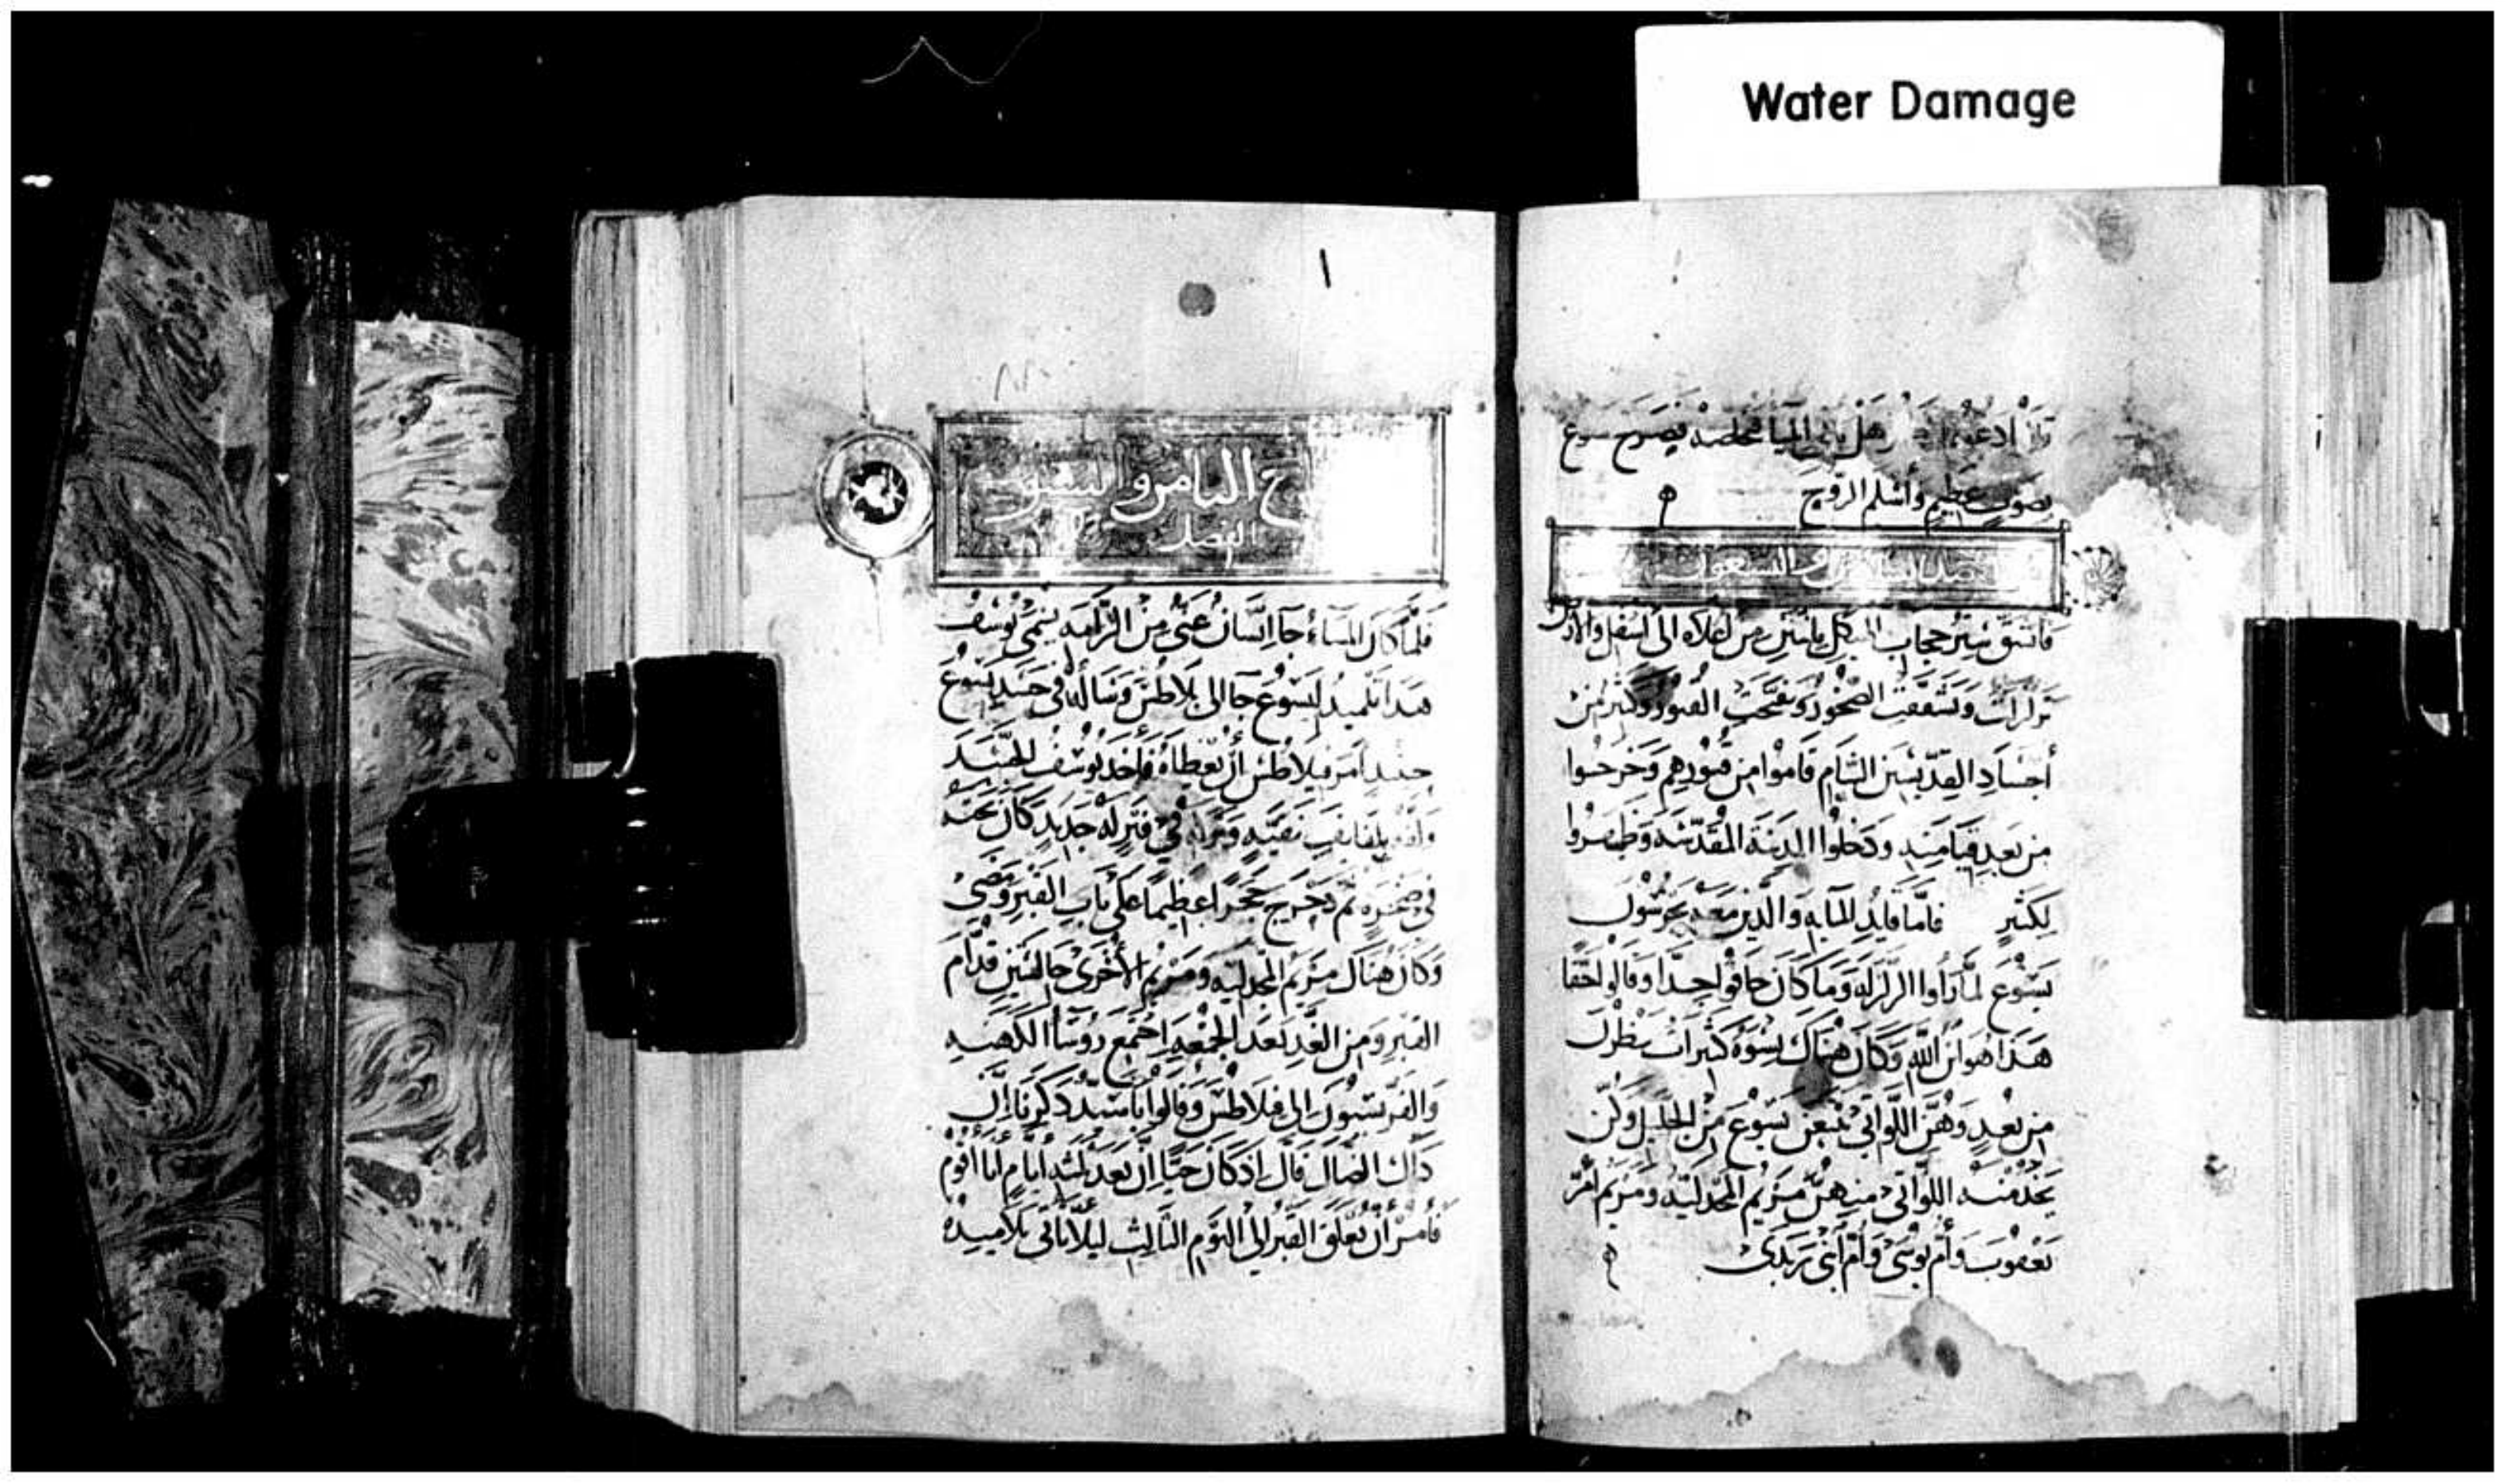 Water Damage
بصوت عظيم وأسلم الروح
فانشق ستر حجاب الهيكل باثنين من أعلاه الى أسفل والأرض
تزلزلت وتشققت الصخور وتفتحت القبور وكثير من
أجساد القديسين النيام قاموا من قبورهم وخرجوا
من بعد قيامته ودخلوا المدينة المقدسة وظهروا
لكثير فأما قايد المايه والذين معه يحرسون
يسوع لما رأوا الزلزله وما كان خافوا جدا وقالوا حقا
هذا هو ابن الله وكان هناك نسوه كثيرات ينظرن
من بعد وهن اللواتي تبعن يسوع من الجليل وكن
يخدمنه اللواتي منهن مريم المجدليه ومريم أم
يعقوب وأم يوسى وأم ابني زبدى
١
الثامن و
الفصل
فلما كان المساء جا انسان غني من الرامه يسمى يوسف
هذا تلميذ ليسوع جا الى بلاطس وساله في جسد يسوع
حينيذ امر فيلاطس أن يعطاه فأخذ يوسف الجسد
ولفه بلفايف نقيه وتركه في قبر له جديد كان نحته
في صخره ثم دحرج حجرا عظيما على باب القبر ومضى
وكان هناك مريم المجدليه ومريم الأخرى جالستين قدام
القبر ومن الغد بعد الجمعه اجتمع روسا الكهنه
والفريسيون الى فيلاطس وقالوا يا سيد ذكرنا إن
ذاك الضال قال اذ كان حيا ان بعد ثلثه أيام أنا أقوم
فأمر أن يغلق القبر الى اليوم الثالث ليلا يأتي تلاميذه